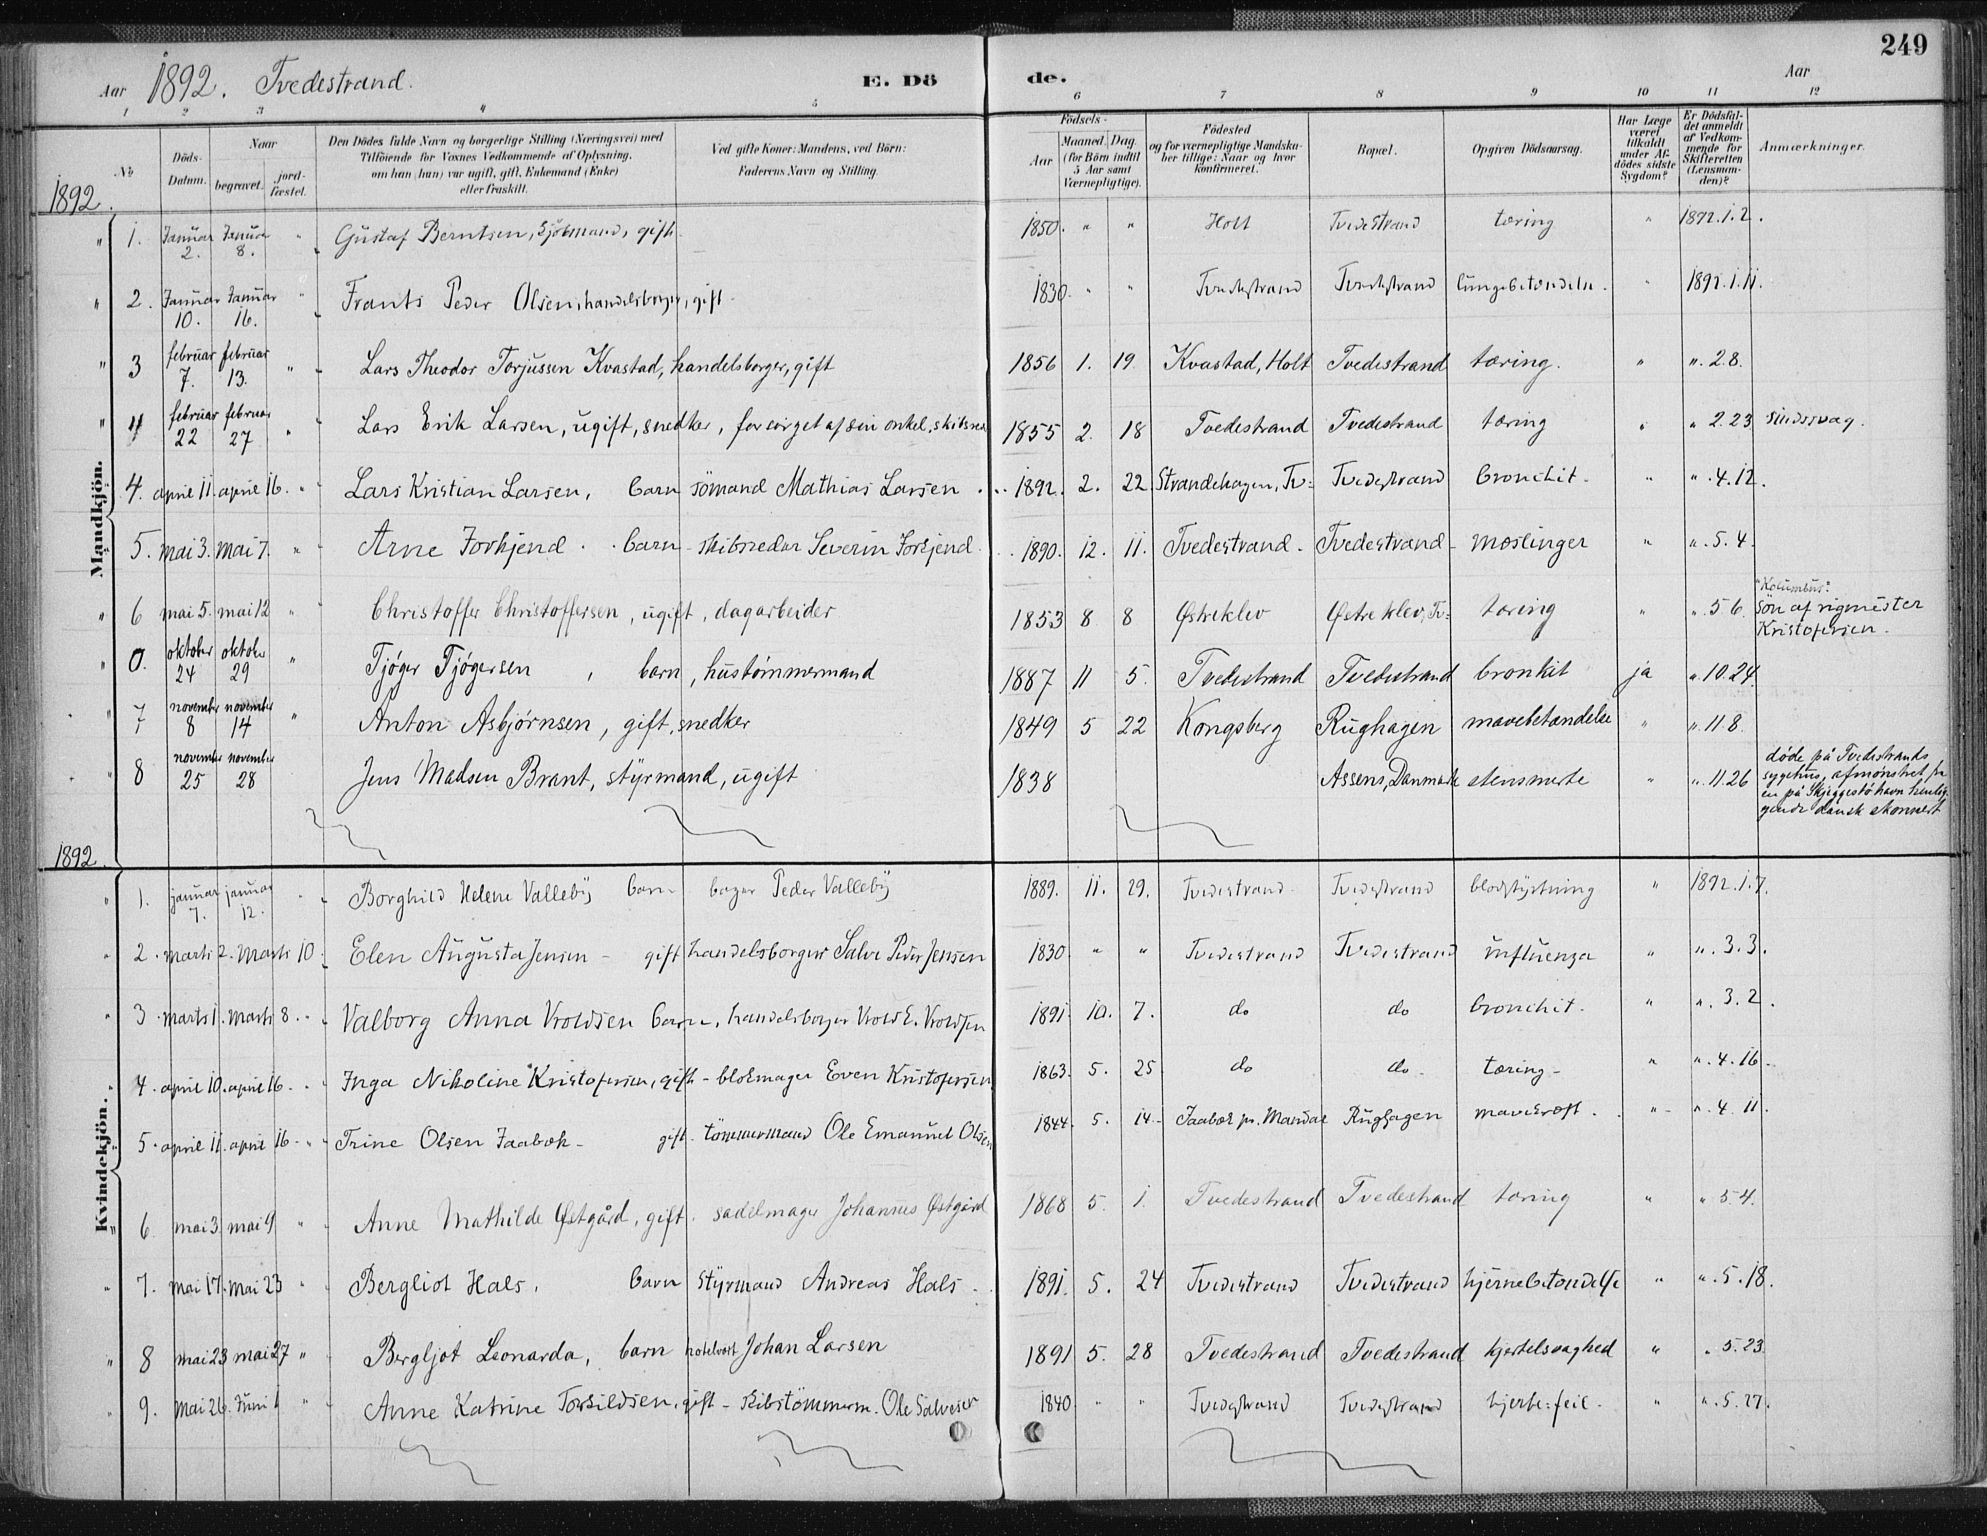 249
Aar 1892. Tvedestrand. E. Dö de. Aar
1 2 3 4 5 6 7 8 9 10 11 12
№ Döds-Datum. Naar begravet. jord-fæstet. Den Dödes fulde Navn og borgerlige Stilling (Næringsvei) med Tilföiende for Voxnes Vedkommende af Oplysning, om han (hun) var ugift, gift, Enkemand (Enke) eller fraskilt. Ved gifte Koner: Mandens, ved Börn: Faderens Navn og Stilling. Födsels- Aar Maaned. Dag. (for Börn indtil 5 Aar samt Værnepligtige). Födested og for værnepligtige Mandskaber tillige: Naar og hvor konfirmeret. Bopæl. Opgiven Dödsaarsag. Har Læge været tilkaldt under Afdödes sidste Sygdom? Er Dödsfaldet anmeldt af Vedkommende for Skifteretten (Lensmanden)? Anmærkninger.
1892.
Mandkjön.
" 1. Januar 2. Januar 8. " Gustaf Berntsen, Sjömand, gift. 1850. " " Holt Tvedestrand tæring " 1892.1.2.
" 2. Januar 10. Januar 16. " Frants Peder Olsen, handelsborger, gift. 1830. " " Tvedestrand Tvedestrand lungebetændelse. " 1892.1.11.
" 3 februar 7. februar 13. " Lars Theodor Torjussen Kvastad, handelsborger, gift 1856 1. 19. Kvastad, Holt Tvedestrand tæring. " ". 2.8.
" 4 februar 22 februar 27 " Lars Erik Larsen, ugift, snedker, forsörget af sin onkel, 1855 2. 18 Tvedestrand Tvedestrand tæring " " 2.23 sindssvag.
4. april 11. april 16. " Lars Kristian Larsen, barn sömand Mathias Larsen. 1892. 2. 22. Strandehagen, Tv: Tvedestrand bronchit. " ". 4.12.
5. mai 3. mai 7. " Arne Forkjend. barn - skibsreder Severin Forkjend. 1890. 12. 11. Tvedestrand. Tvedestrand - mæslinger " ". 5.4.
" 6 mai 5. mai 12 " Christoffer Christoffersen, ugift, dagarbeider 1853 8 8 Østreklev Østreklev, Tv: tæring " ". 5 6. "Kolumbus". Sön af rigmester Kristofersen.
" 0. oktober 24 oktober 29 " Tjøger Tjøgersen, barn, hustømmermand 1887 11 5. Tvedestrand Tvedestrand bronkit ja ". 10.24.
7 november 8 november 14 " Anton Asbjørnsen, gift, snedker 1849 5 22 Kongsberg Rughagen mavebetændelse " ". 11 8.
" 8 november 25 november 28 Jens Madsen Brant, styrmand, ugift 1838 Assens, Danmark stensmerte " ". 11.26 døde på Tvedestrands sygehus, afmønstret fra en på Skjeggestö havn henliggende dansk skonnert
1892.
Kvindekjön.
" 1. januar 7. januar 12. Borghild Helene Valleby barn - bager Peder Valleby 1889. 11. 29. Tvedestrand. Tvedestrand blodstyrtning " 1892.1.7.
" 2. marts 2. Marts 10. Elen Augusta Jensen - gift handelsborger Salve Peder Jensen 1830. " " Tvedestrand Tvedestrand influenza " ". 3.3.
" 3 marts 1. marts 8. Valborg Anna Vroldsen barn, handelsborger Vrold E. Vroldsen 1891. 10. 7. do do bronchit. " ". 3.2.
4. april 10. april 16. Inga Nikoline Kristofersen, gift - blokmager Even Kristofersen 1863. 5. 25 do do tæring - " ". 4.16.
5. april 11. april 16. Trine Olsen Faabæk - gift. tömmermand Ole Emanuel Olsen 1844. 5. 14. Faabæk pr. Mandal Rughagen mavekræft. " ". 4 11.
" 6. mai 3 mai 9 " Anne Mathilde Østgård, gift. sadelmager Johannes Østgård 1868 5. 1. Tvedestrand Tvedestrand tæring " " 5 4.
" 7. mai 17. mai 23 " Bergliot Hals. barn Styrmand Andreas Hals. 1891. 5. 24 Tvedestrand Tvedestrand hjernebetændelse " ". 5.18.
" 8 mai 23 mai 27 " Bergljot Leonarda, barn hotelvært Johan Larsen 1891 5. 28 Tvedestrand Tvedestrand kjertelsvaghed " ". 5.23.
" 9. mai 26. Juni 1 " Anne Katrine Torkildsen, gift - skibstömmerm. Ole Salvesen 1840 " " Tvedestrand Tvedestrand hjerte:feil. " ". 5.27.